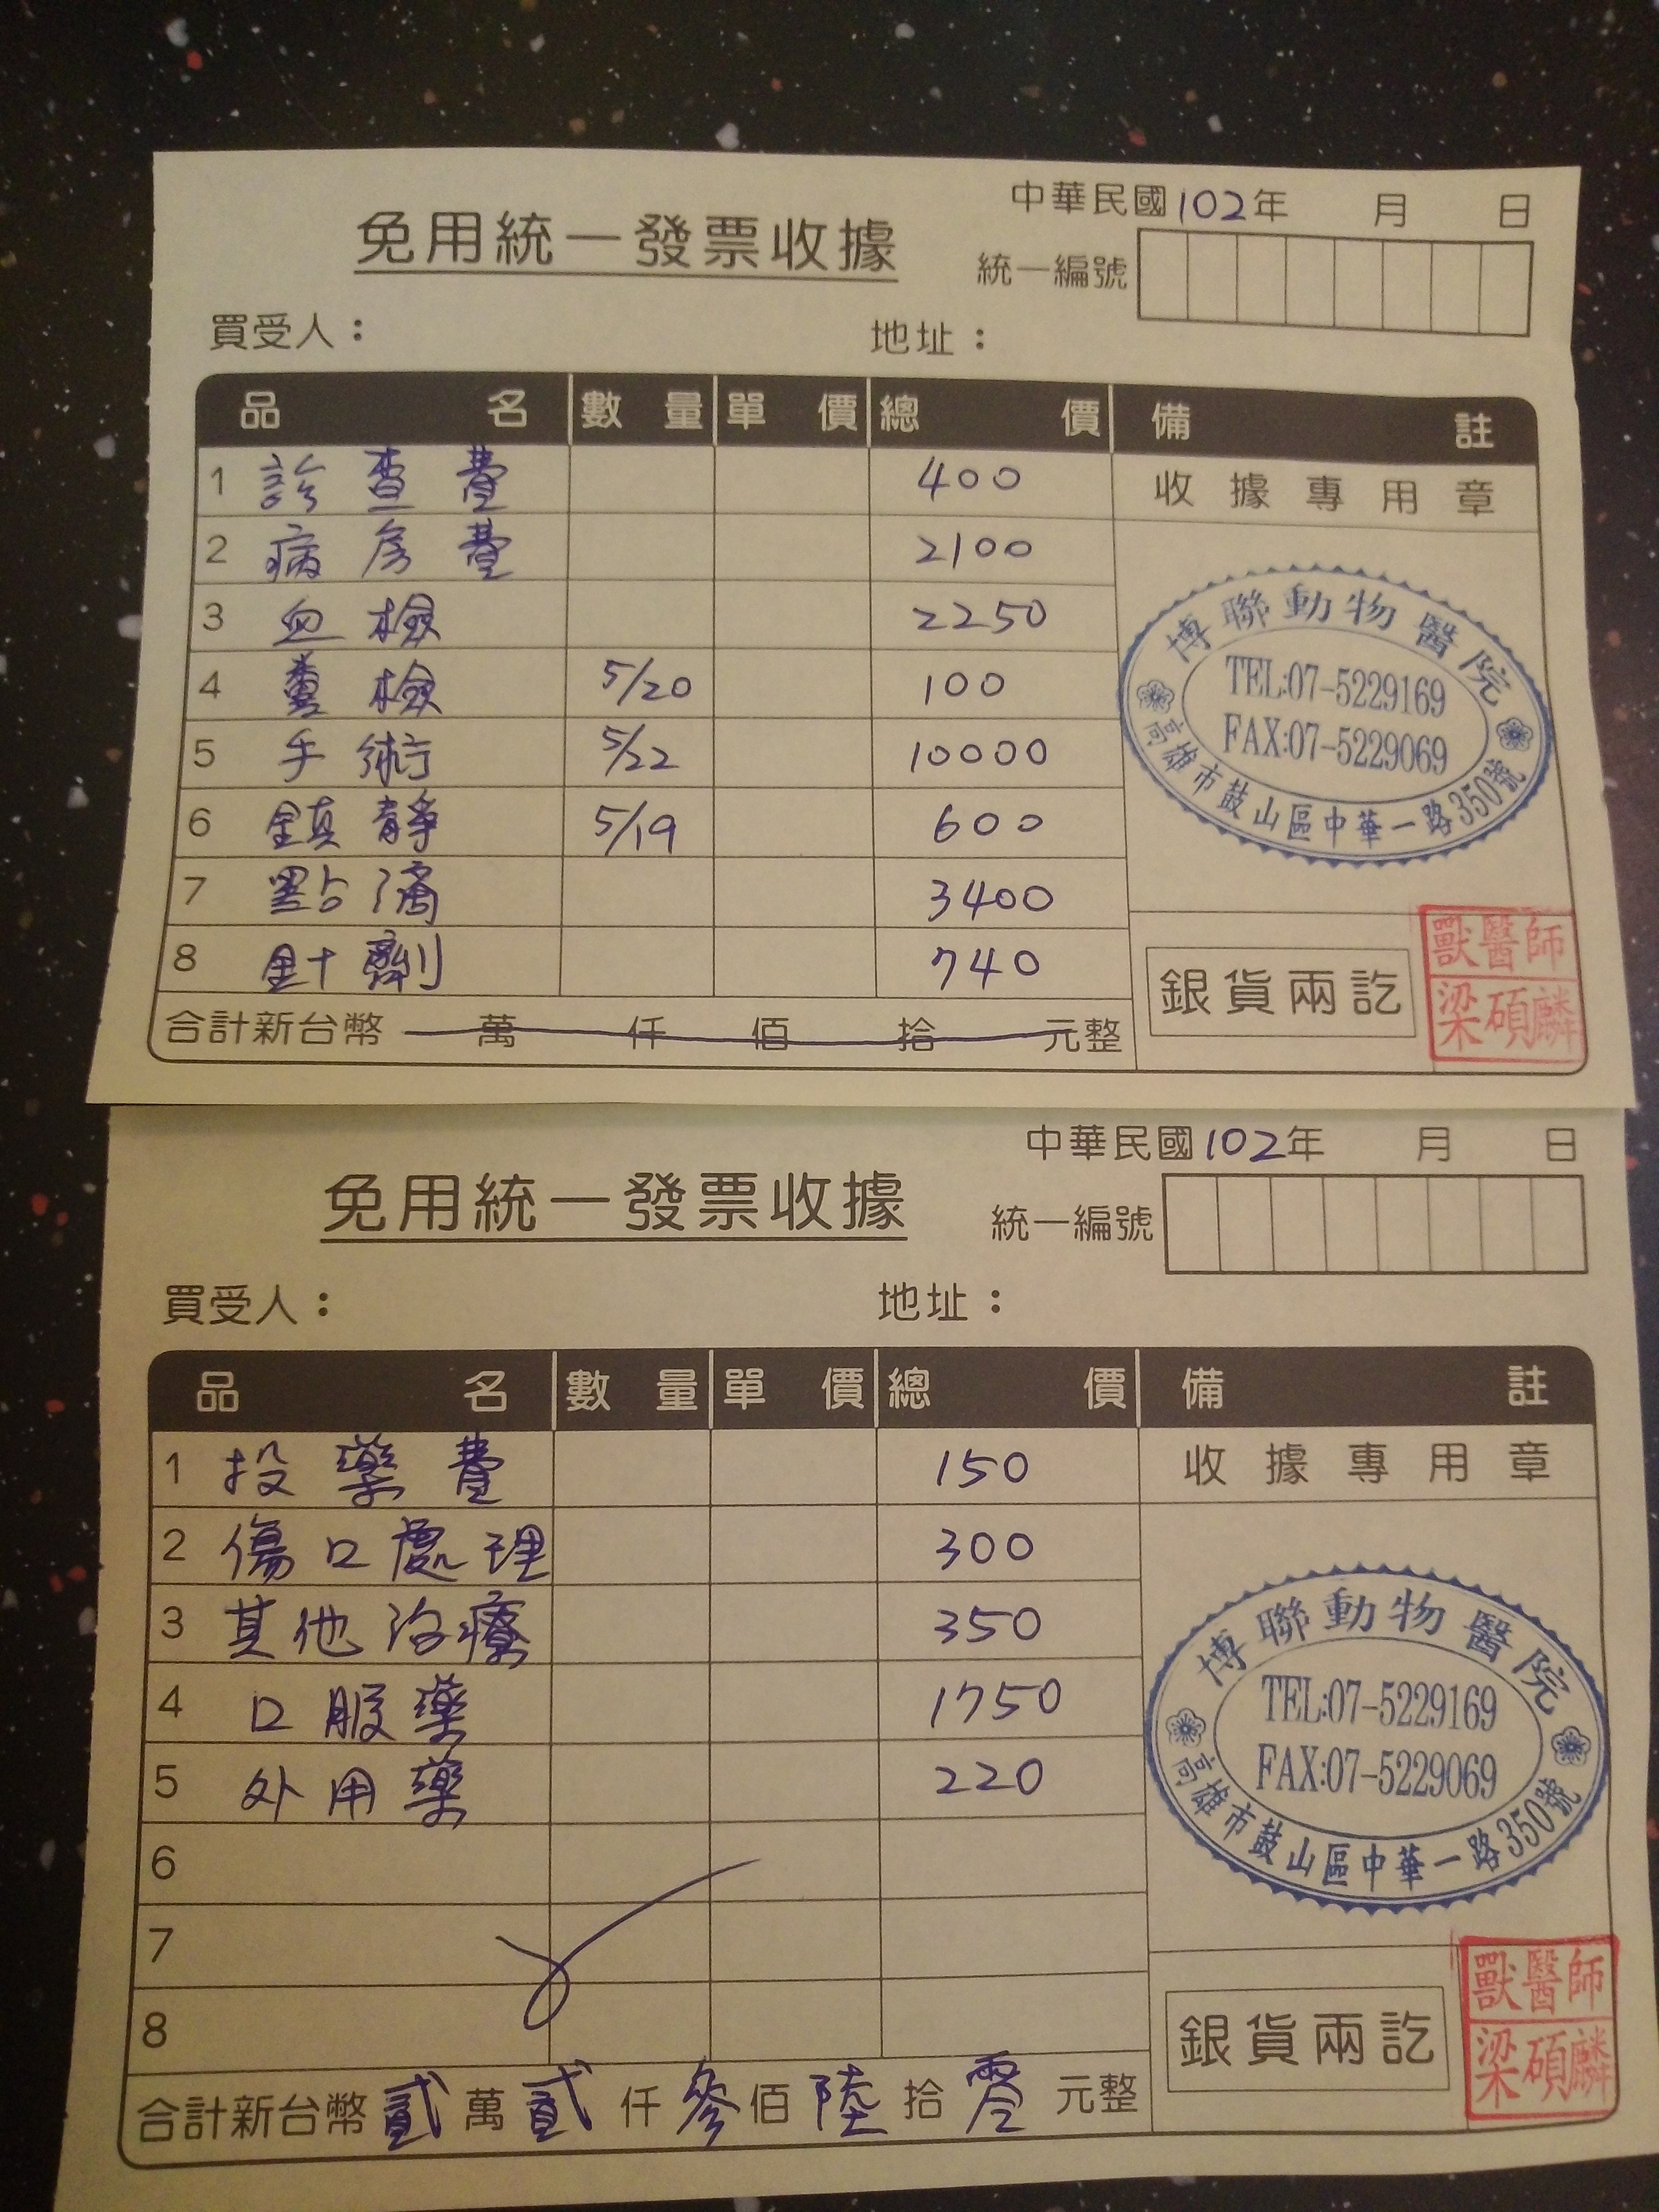 中華民國102年 月 日
免用統一發票收據
統一編號
買受人： 地址：
品名 數量 單價 總價 備註
1 診查費 400 收據專用章
2 病房費 2100
3 血檢 2250
4 糞檢 5/20 100
5 手術 5/22 10000
6 鎮靜 5/19 600
7 點滴 3400
8 針劑 740
合計新台幣 萬 仟 佰 拾 元整
博聯動物醫院
TEL:07-5229169
FAX:07-5229069
高雄市鼓山區中華一路350號
銀貨兩訖
獸醫師
梁碩麟
中華民國102年 月 日
免用統一發票收據
統一編號
買受人： 地址：
品名 數量 單價 總價 備註
1 投藥費 150 收據專用章
2 傷口處理 300
3 其他治療 350
4 口服藥 1750
5 外用藥 220
6
7
8
合計新台幣貳萬貳仟參佰陸拾零元整
博聯動物醫院
TEL:07-5229169
FAX:07-5229069
高雄市鼓山區中華一路350號
銀貨兩訖
獸醫師
梁碩麟